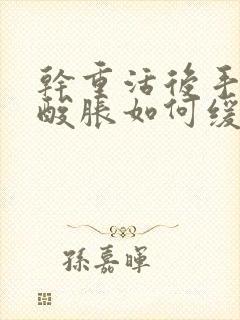 幹重活後手
酸脹如何緩
孫嘉暉